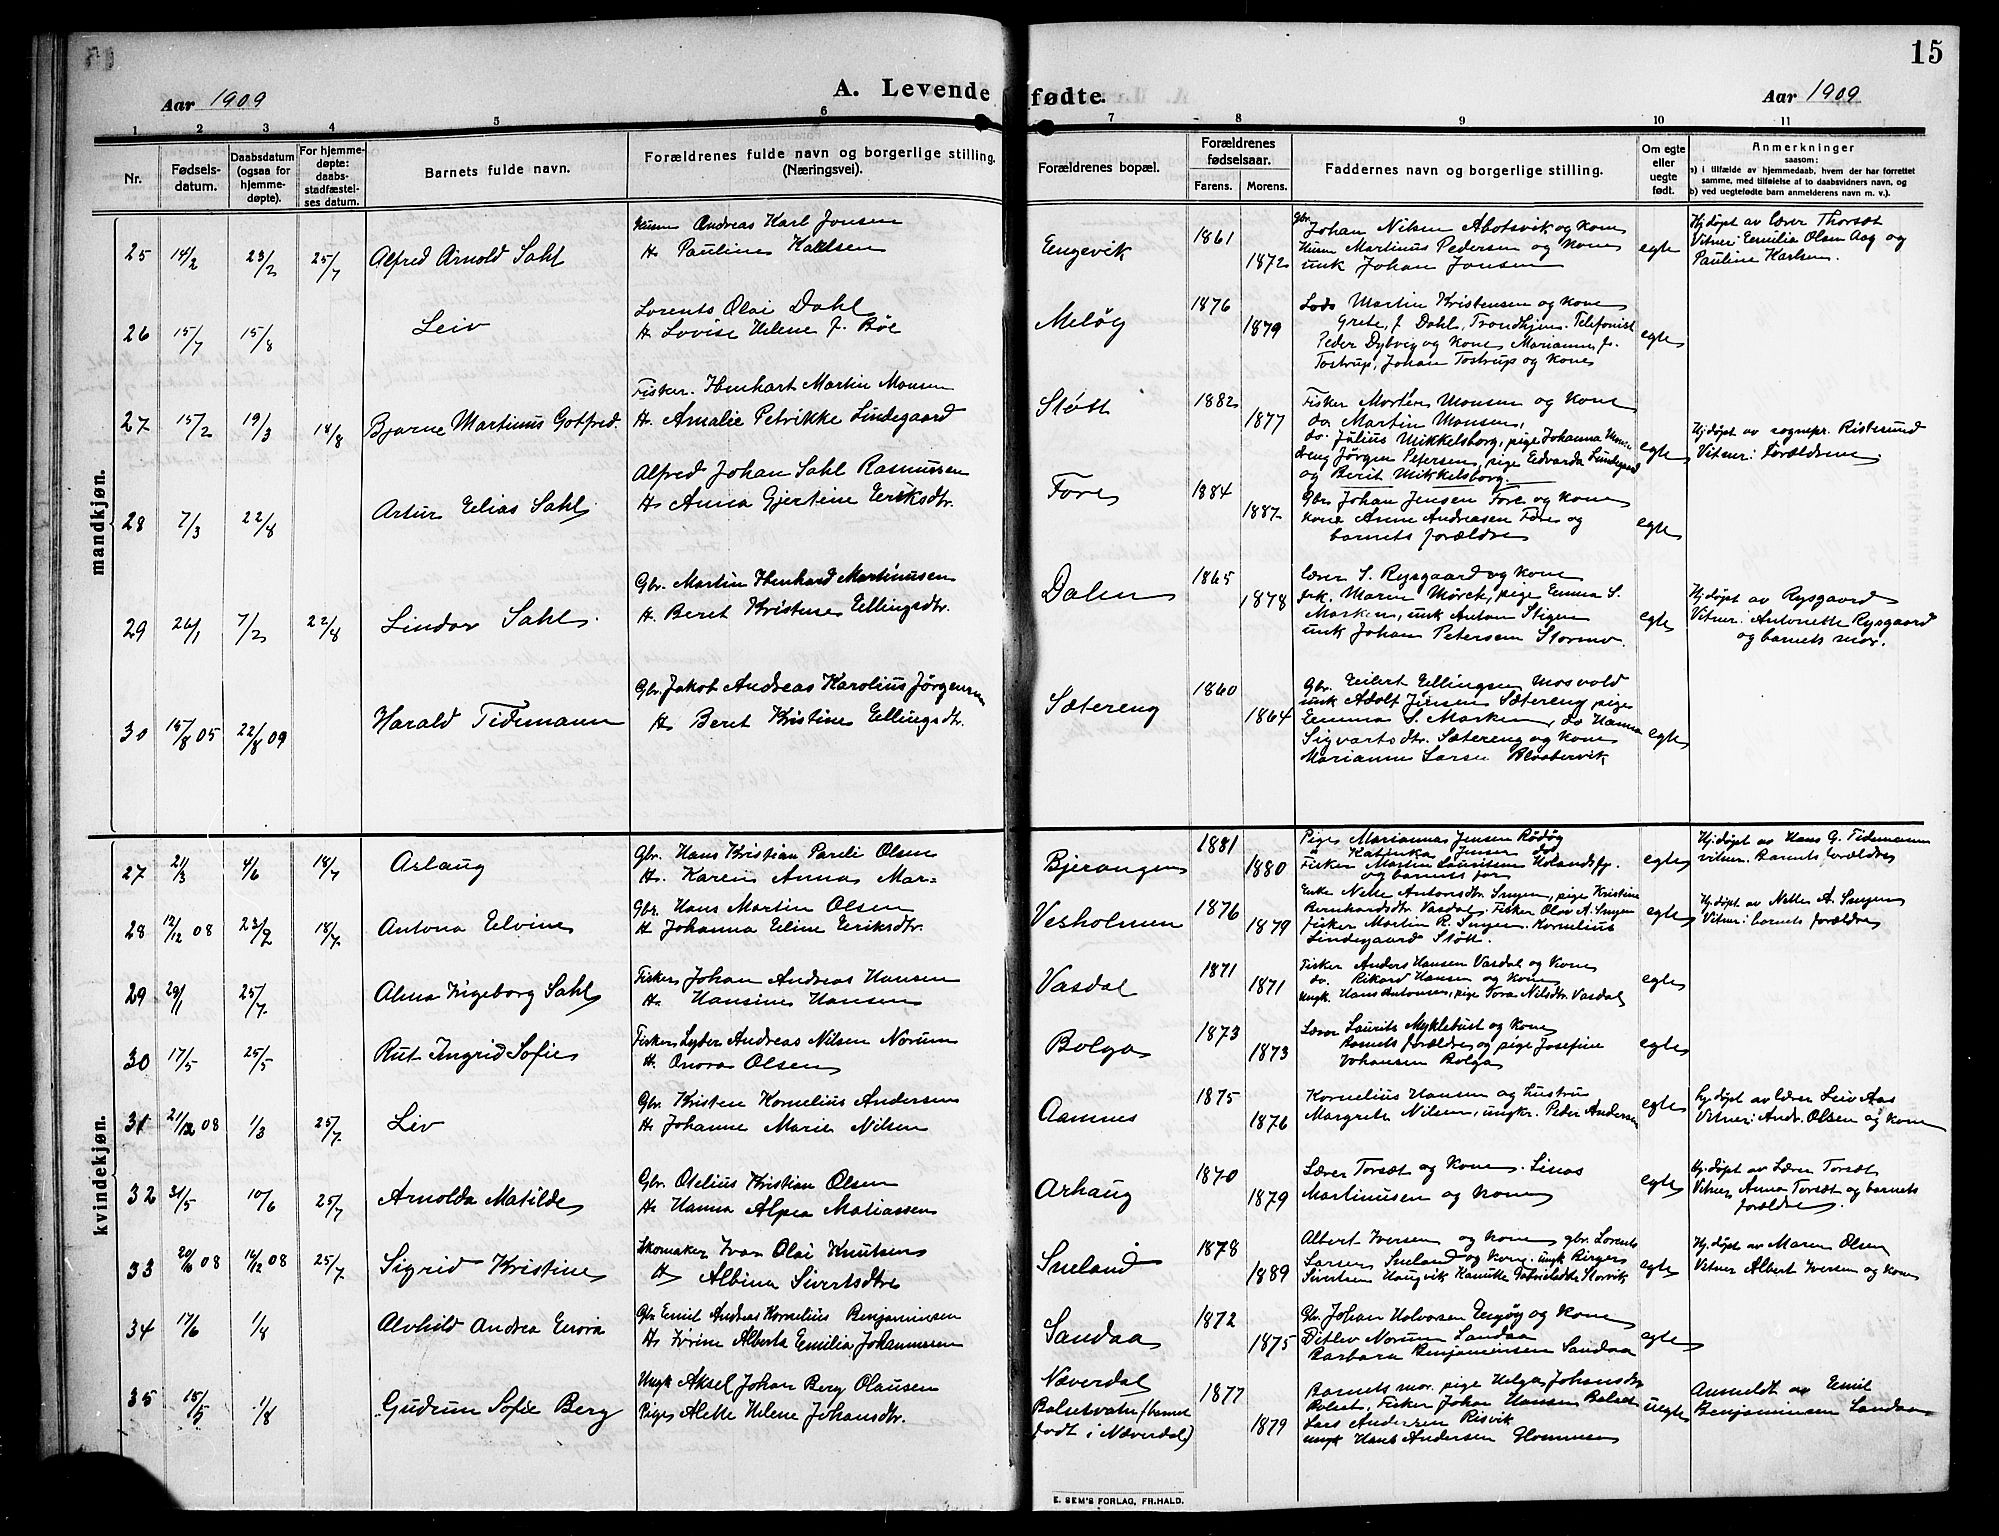 15
Aar 1909
A. Levende fødte.
Aar 1909
1 2 3 4 5 6 7 8 9 10 11
Nr.
Fødsels-
datum.
Daabsdatum
(ogsaa for
hjemme-
døpte).
For hjemme-
døpte:
daabs-
stadfæstel-
ses datum.
Barnets fulde navn.
Forældrenes fulde navn og borgerlige stilling.
(Næringsvei).
Forældrenes bopæl.
Forældrenes
fødselsaar.
Farens. Morens.
Faddernes navn og borgerlige stilling.
Om egte
eller
uegte
født.
Anmerkninger
saasom:
a) i tilfælde av hjemmedaab, hvem der har forrettet
samme, med tilføielse af to daabsvidners navn, og
b) ved uegtefødte barn anmelderens navn m. v.).
mandkjøn.
25 14/2 23/2 25/7 Alfred Arnold Sahl
Andreas Karl Jonsen
H. Pauline
Engevik
1861
1872
Gbr. Johan Nilsen Abotsvik og kone
Martinus Pedersen og kone
unk Johan Jonsen
egte
Hj.døpt av lærer Thorsæt
Vitner: Emilia Olsen Aag og
Pauline Karlsen.
26 15/7 15/8 Leiv
Lorents Olai Dahl
H. Lovise Helene f. Bøe
Meløy
1876
1879
Lods Martin Kristensen og kone
Grete, f. Dahl, Trondhjem. Telefonist
Peder Dybvig og kone Marianne f.
Tostrup, Johan Tostrup og kone
egte
27 15/2 19/3 18/8 Bjarne Martinus Gotfred.
Fisker. Ebenhart Martin Monsen
H. Amalie Petrikke Lindegaard
Støtt
1882
1877
Fisker Morten Monsen og kone
do Martin Monsen,
do. Julius Mikkelsborg, pige Johanna
Jørgen Petersen, pige Edvarda Lindegaard
og Berit Mikkelsborg.
egte
Hj.døpt av sognepr. Risterund
Vitner: Forældrene
28 7/3 22/8 Artur Elias Sahl
Alfred Johan Sahl Rasmussen
H. Anna Gjertine Eriksdtr.
Fore
1884
1887
Gbr Johan Jensen Fore og kone
kone Anne Andreasen Føre og
barnets forældre
egte
29 26/1 7/2 22/8 Lindor Sahl.
Gbr. Martin Ebenhard Martinusen
H. Beret Kristense Ellingsdtr.
Dalen
1865
1878
Lærer S. Rysgaard og kone
frk. Maren Mørch, pige Emma S.
Marken, unk Anton Stigen
unk Johan Petersen Stormo.
egte
Hj.døpt av Rysgaard
Vitner: Antonette Rysgaard
og barnets mor.
30 15/8 05 22/8 09 Harald Tidemann
Gbr. Jakob Andreas Karolius Jørgensen
H. Beret Kristine Ellingsdtr.
Sætereng
1860
1864
Gbr. Eilert Ellingsen Mosvold
unk Adolf Jensen Sætereng pige
Emma S. Marken, do Hanna
Sigvartsdtr. Sætereng og kone
Marianne Larsen
egte
kvindekjøn.
27 21/3 4/6 18/7 Aslaug
Gbr. Hans Kristian Pareli Olsen
H. Karen Anna Mar=
Bjerangen
1881
1880
Pige Marianna Jensen Rødøy
" Katinka Jensen do
Fisker Martin Lauritsen
og barnets far
egte
Hj.døpt av Hans G. Tidemann
vitner. Barnets forældre
28 12/12 08 23/2 18/7. Antona Elvine
Gbr. Hans Martin Olsen
H. Johanna Eline Eriksdtr.
Vesholmen
1876
1879
Enke Nelle Antonsdtr. Snyen, pige Kristine
Bernhardsdtr Vasdal. Fisker Olav A. Snyen
fisker Martin R. Snyen. Kornelius
Lindegaard Støtt.
egte
Hj.døpt av Nelle A. Snyen
Vitner: barnets forældre
29 29/1 25/7. Alma Ingeborg Sahl
Fisker Johan Andreas Hansen
H. Hansine Hansen
Vasdal
1871
1871
Fisker Anders Hansen Vasdal og kone
do. Rikard Hansen og kone
Ungk. Hans Antonsen, pige Tora Nilsdtr. Vasdal
egte
30 17/5 25/5 Rut Ingrid Sofie
Fisker Lyder Andreas Nilsen Norum
H. Onora Olsen
Bolga
1873
1873
Lærer Laurits Myklebust og kone
Barnets forældre og pige Josefine
Johansen Bolga
egte
31 21/12 08 1/3 25/7 Liv
Gbr. Kristen Kornelius Andersen
H. Johanne Marie Nilsen
Aamnes
1875
1876
Kornelius Hansen og hustru
Margrete Nilsen, ungkr. Peder Andersen
egte
Hj.døpt av lærer Leiv Aas
Vitner: Andr. Olsen og kone
32 31/5 10/6 25/7 Arnolda Matilde
Gbr. Otelius Kristian Olsen
H. Hanna Alpea Matiassen
Arhaug
1870
1879
Lærer Torsæt og kone. Linas
Martinusen og kone
egte
Hj.døpt av Lærer Torsæt
Vitner Anna Torsæt og barnets
forældre
33 20/6 08 14/12 08 25/7. Sigrid Kristine
Skomaker Ivar Olai Knutsen
H. Albina Sivertsdtr
Sneland
1878
1889
Albert Iversen og kone gbr. Lorents
Larsen Sneland og kone. ungk Birger
Sivertsen Haugvik
egte
Hj.døpt av Maren Olsen
Vitner Albert Iversen og kone
34 17/6 1/8 Alvhild Andrea Enora
Gbr Emil Andreas Kornelius Benjaminsen
H. Jørine Alberta Emilia Johannessen
Sandaa
1872
1875
Gbr. Johan Halvorsen Engøy og kone
Ditlev Norum Sandaa
Barbara Benjaminsen Sandaa
egte
35 15/5 1/8 Gudrun Sofie Berg
Ungk Aksel Johan Berg Olausen
Pige Alette Helene Johansdtr.
Næverdal
Bolsetvatn (barnet
født i Næverdal)
1877
1879
Barnets mor. pige Helga Johansdtr
Bolset, Fisker Johan Hansen Bolset
Lars Andersen Risvik
ungk Hans Andersen
uegte
Anmeldt av Emil
Benjaminsen Sandaa
E. SEM'S FORLAG, FR.HALD.